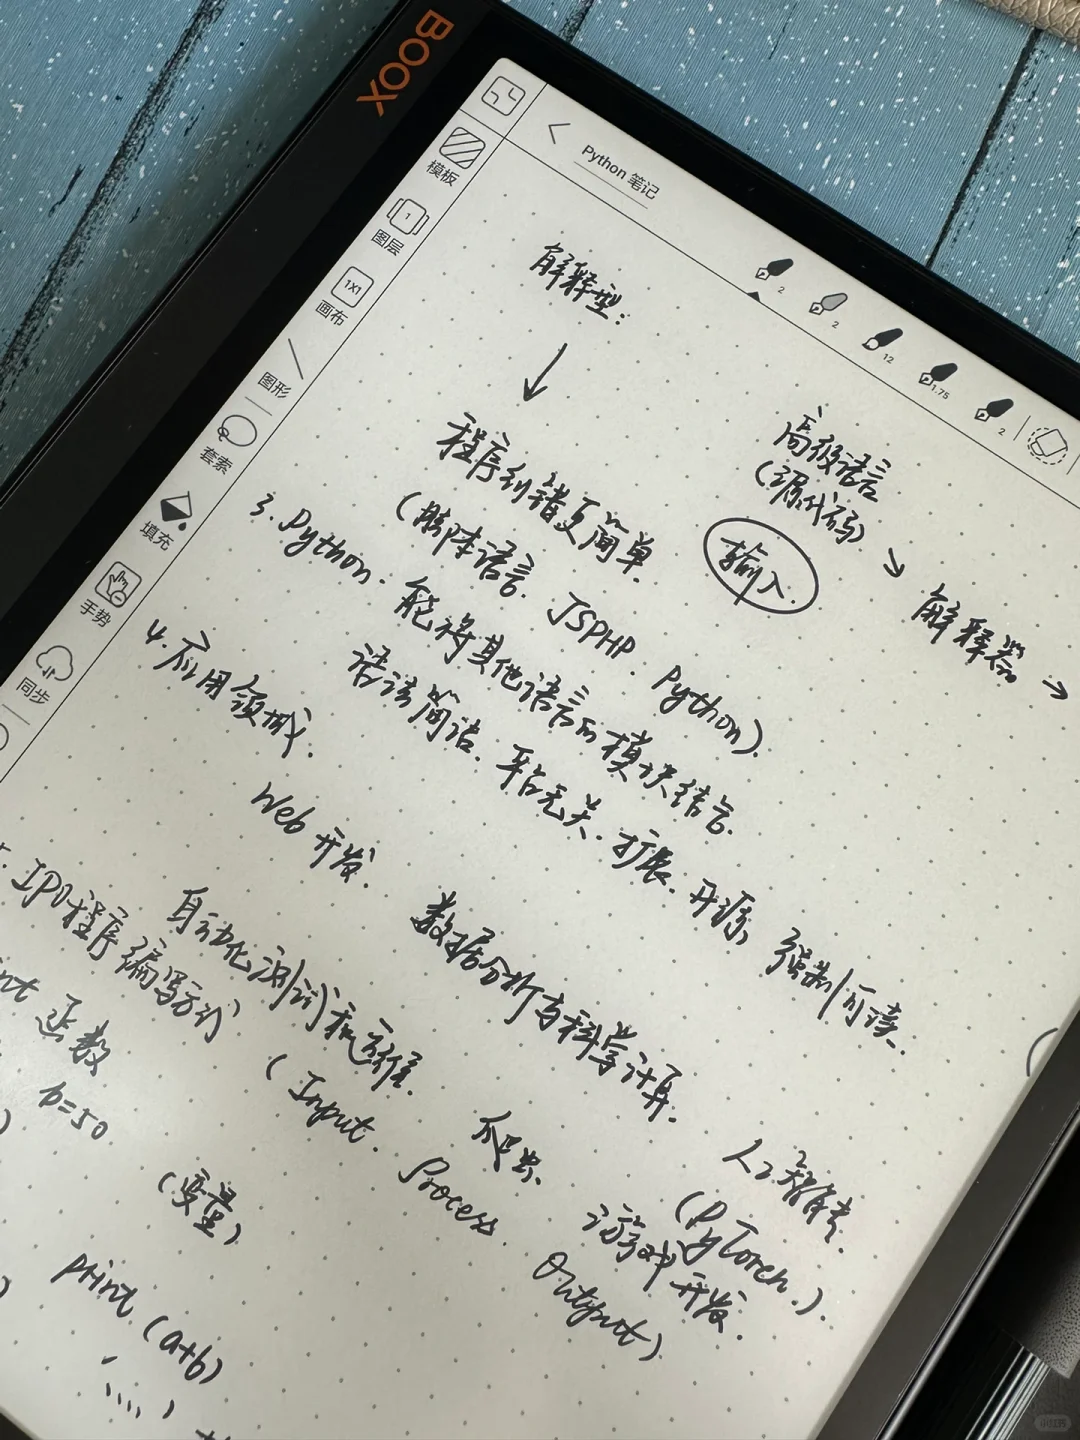 BOOX
Python 笔记
模板
图层
1
画布
1X1
图形
套索
填充
手势
同步
2
2
12
1.75
2
解释型:
↓
程序纠错更简单.
(脚本语言. JSPHP. Python).
高级语言
(源代码)
输入.
→ 解释器 →
3. Python. 能将其他语言的模块结合.
语法简洁. 平台无关. 扩展. 开源. 强制可读.
4. 应用领域.
Web 开发. 数据分析与科学计算. 人工智能.
(PyTorch.)
自动化测试和运维. 爬虫. 游戏开发.
. IPO程序编写方式 (Input. Process. Output)
int 函数
b=50
(变量)
print (a+b)
小红书